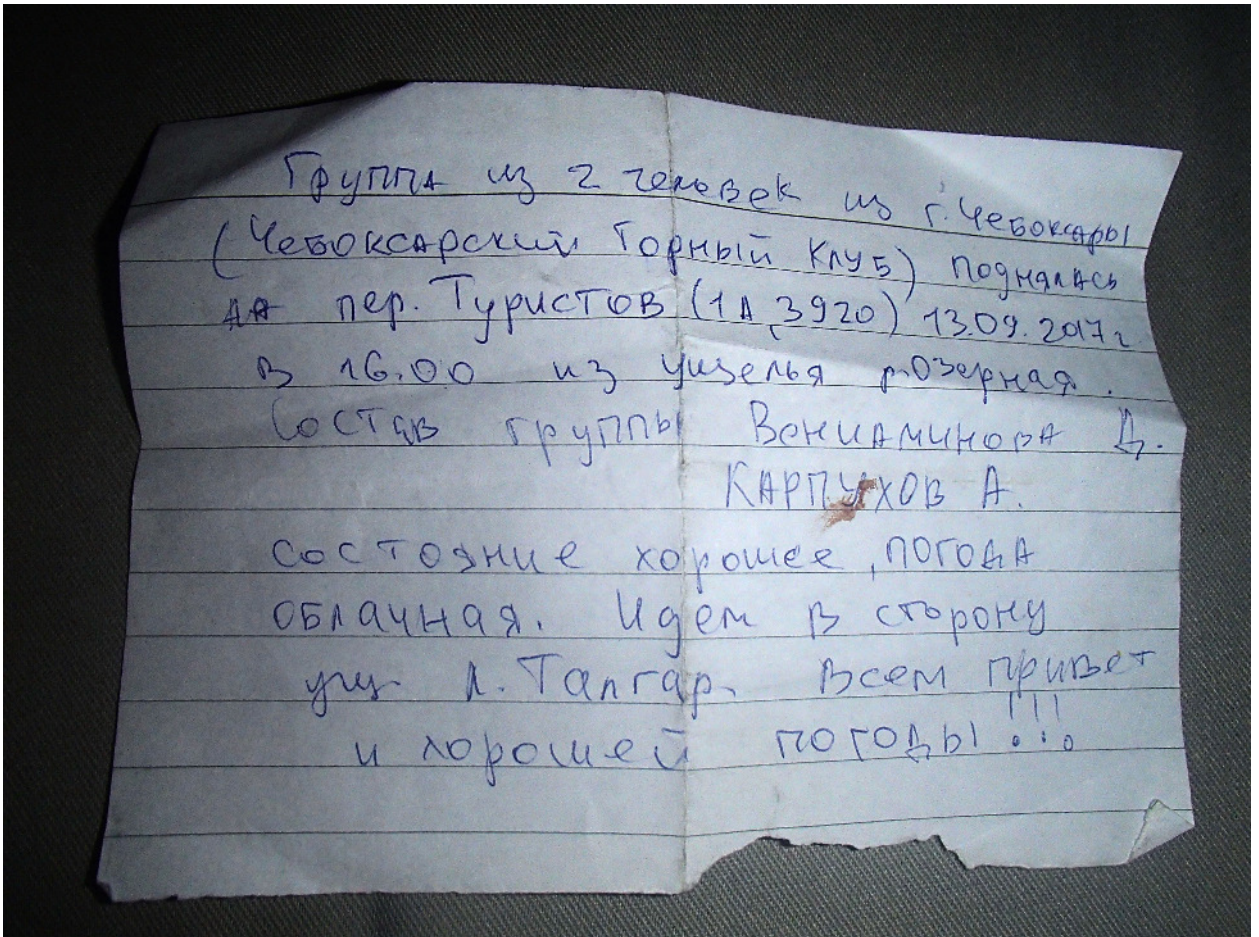 Группа из 2 человек из г. Чебоксары
(Чебоксарский Горный Клуб) поднялась
на пер. Туристов (1А, 3920) 13.09.2017г.
в 16.00 из ущелья р. Озерная.
Состав группы Вениаминова Д.
Карпухов А.
Состояние хорошее, погода
облачная. Идем в сторону
ущ. Л. Талгар. Всем привет
и хорошей погоды!!!